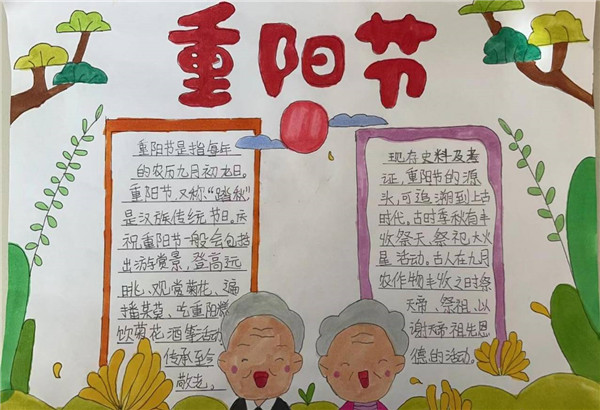 重阳节
重阳节是指每年
的农历九月初九日。
重阳节,又称“踏秋”
是汉族传统节日。庆
祝重阳节一般会包括
出游赏景、登高远
眺、观赏菊花、遍
插茱萸、吃重阳糕
饮菊花酒等活动
传承至今
敬老。
现在史料及考
证,重阳节的源
头,可追溯到上古
时代。古时季秋有丰
收祭天、祭祖、大火
星活动。古人在九月
农作物丰收之时祭
天帝、祭祖、以
谢天帝祖先恩
德的活动。